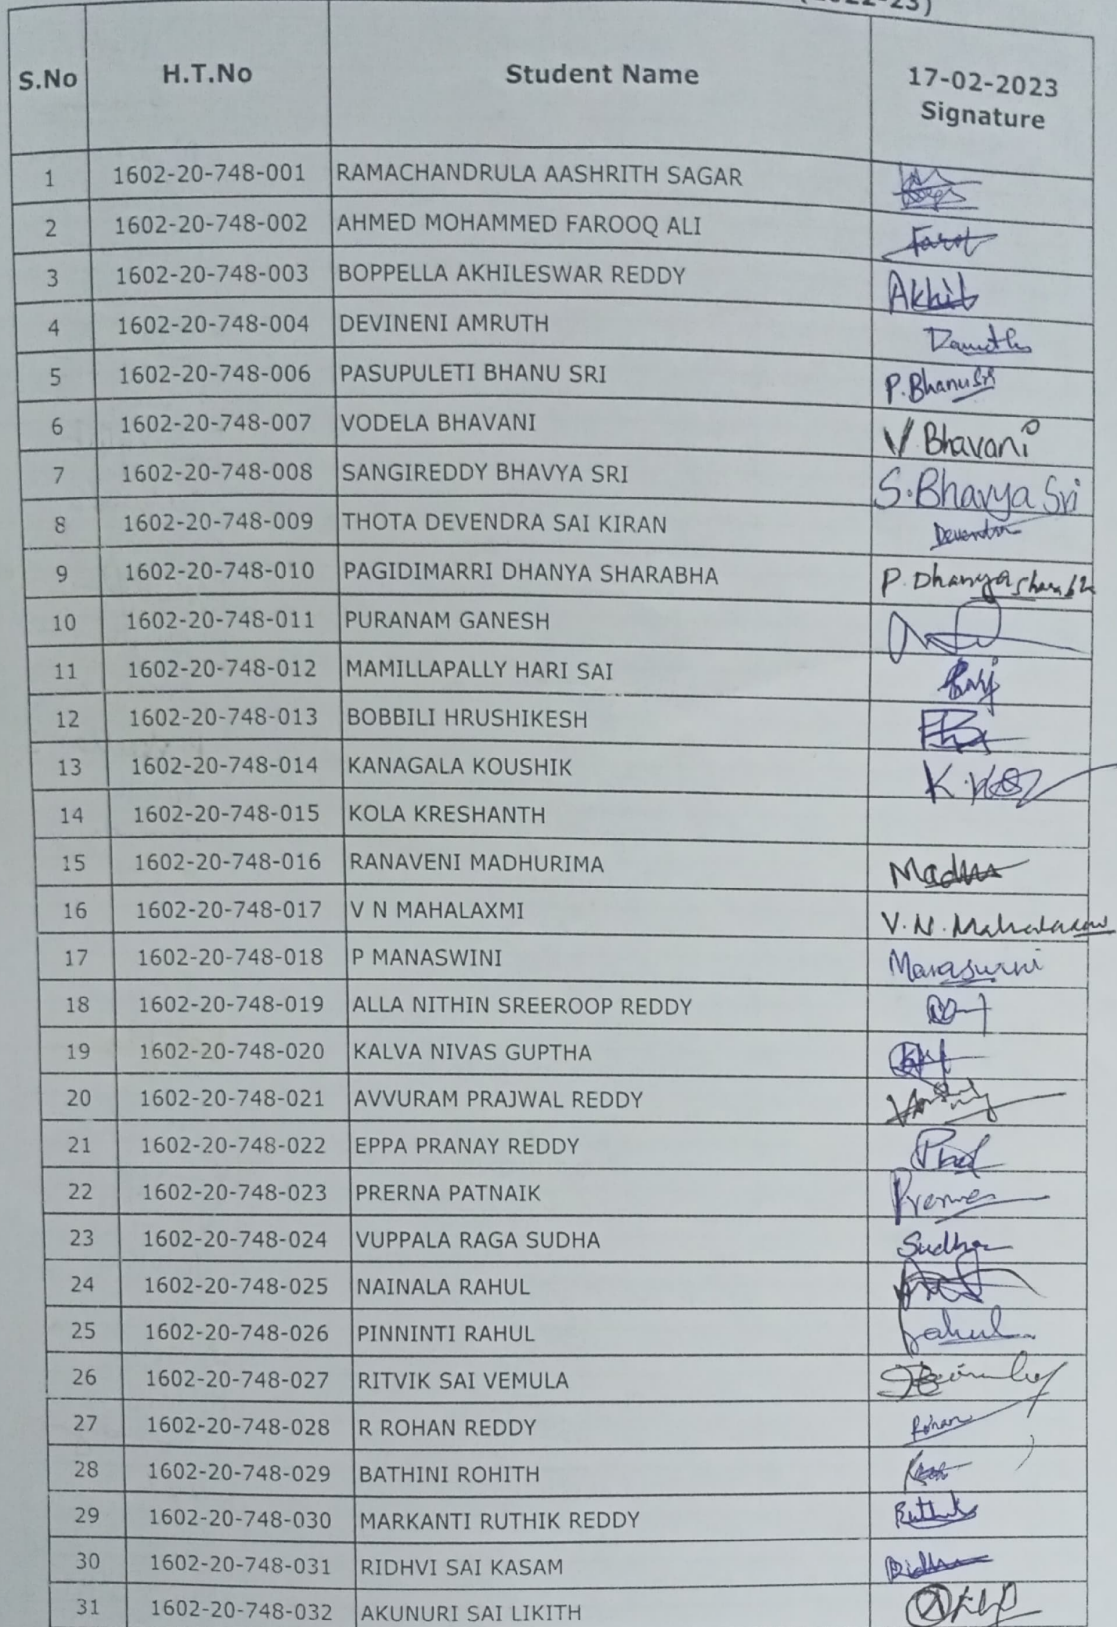 S.No H.T.No Student Name 17-02-2023 Signature
1 1602-20-748-001 RAMACHANDRULA AASHRITH SAGAR
2 1602-20-748-002 AHMED MOHAMMED FAROOQ ALI
3 1602-20-748-003 BOPPELLA AKHILESWAR REDDY
4 1602-20-748-004 DEVINENI AMRUTH
5 1602-20-748-006 PASUPULETI BHANU SRI P.Bhanu Sri
6 1602-20-748-007 VODELA BHAVANI V.Bhavani
7 1602-20-748-008 SANGIREDDY BHAVYA SRI S.Bhavya Sri
8 1602-20-748-009 THOTA DEVENDRA SAI KIRAN
9 1602-20-748-010 PAGIDIMARRI DHANYA SHARABHA P. Dhanya Sharabha
10 1602-20-748-011 PURANAM GANESH
11 1602-20-748-012 MAMILLAPALLY HARI SAI
12 1602-20-748-013 BOBBILI HRUSHIKESH
13 1602-20-748-014 KANAGALA KOUSHIK
14 1602-20-748-015 KOLA KRESHANTH
15 1602-20-748-016 RANAVENI MADHURIMA
16 1602-20-748-017 V N MAHALAXMI V.N.
17 1602-20-748-018 P MANASWINI Manaswini
18 1602-20-748-019 ALLA NITHIN SREEROOP REDDY
19 1602-20-748-020 KALVA NIVAS GUPTHA
20 1602-20-748-021 AVVURAM PRAJWAL REDDY
21 1602-20-748-022 EPPA PRANAY REDDY
22 1602-20-748-023 PRERNA PATNAIK
23 1602-20-748-024 VUPPALA RAGA SUDHA Sudha
24 1602-20-748-025 NAINALA RAHUL
25 1602-20-748-026 PINNINTI RAHUL
26 1602-20-748-027 RITVIK SAI VEMULA
27 1602-20-748-028 R ROHAN REDDY Rohan
28 1602-20-748-029 BATHINI ROHITH
29 1602-20-748-030 MARKANTI RUTHIK REDDY Ruthik
30 1602-20-748-031 RIDHVI SAI KASAM
31 1602-20-748-032 AKUNURI SAI LIKITH